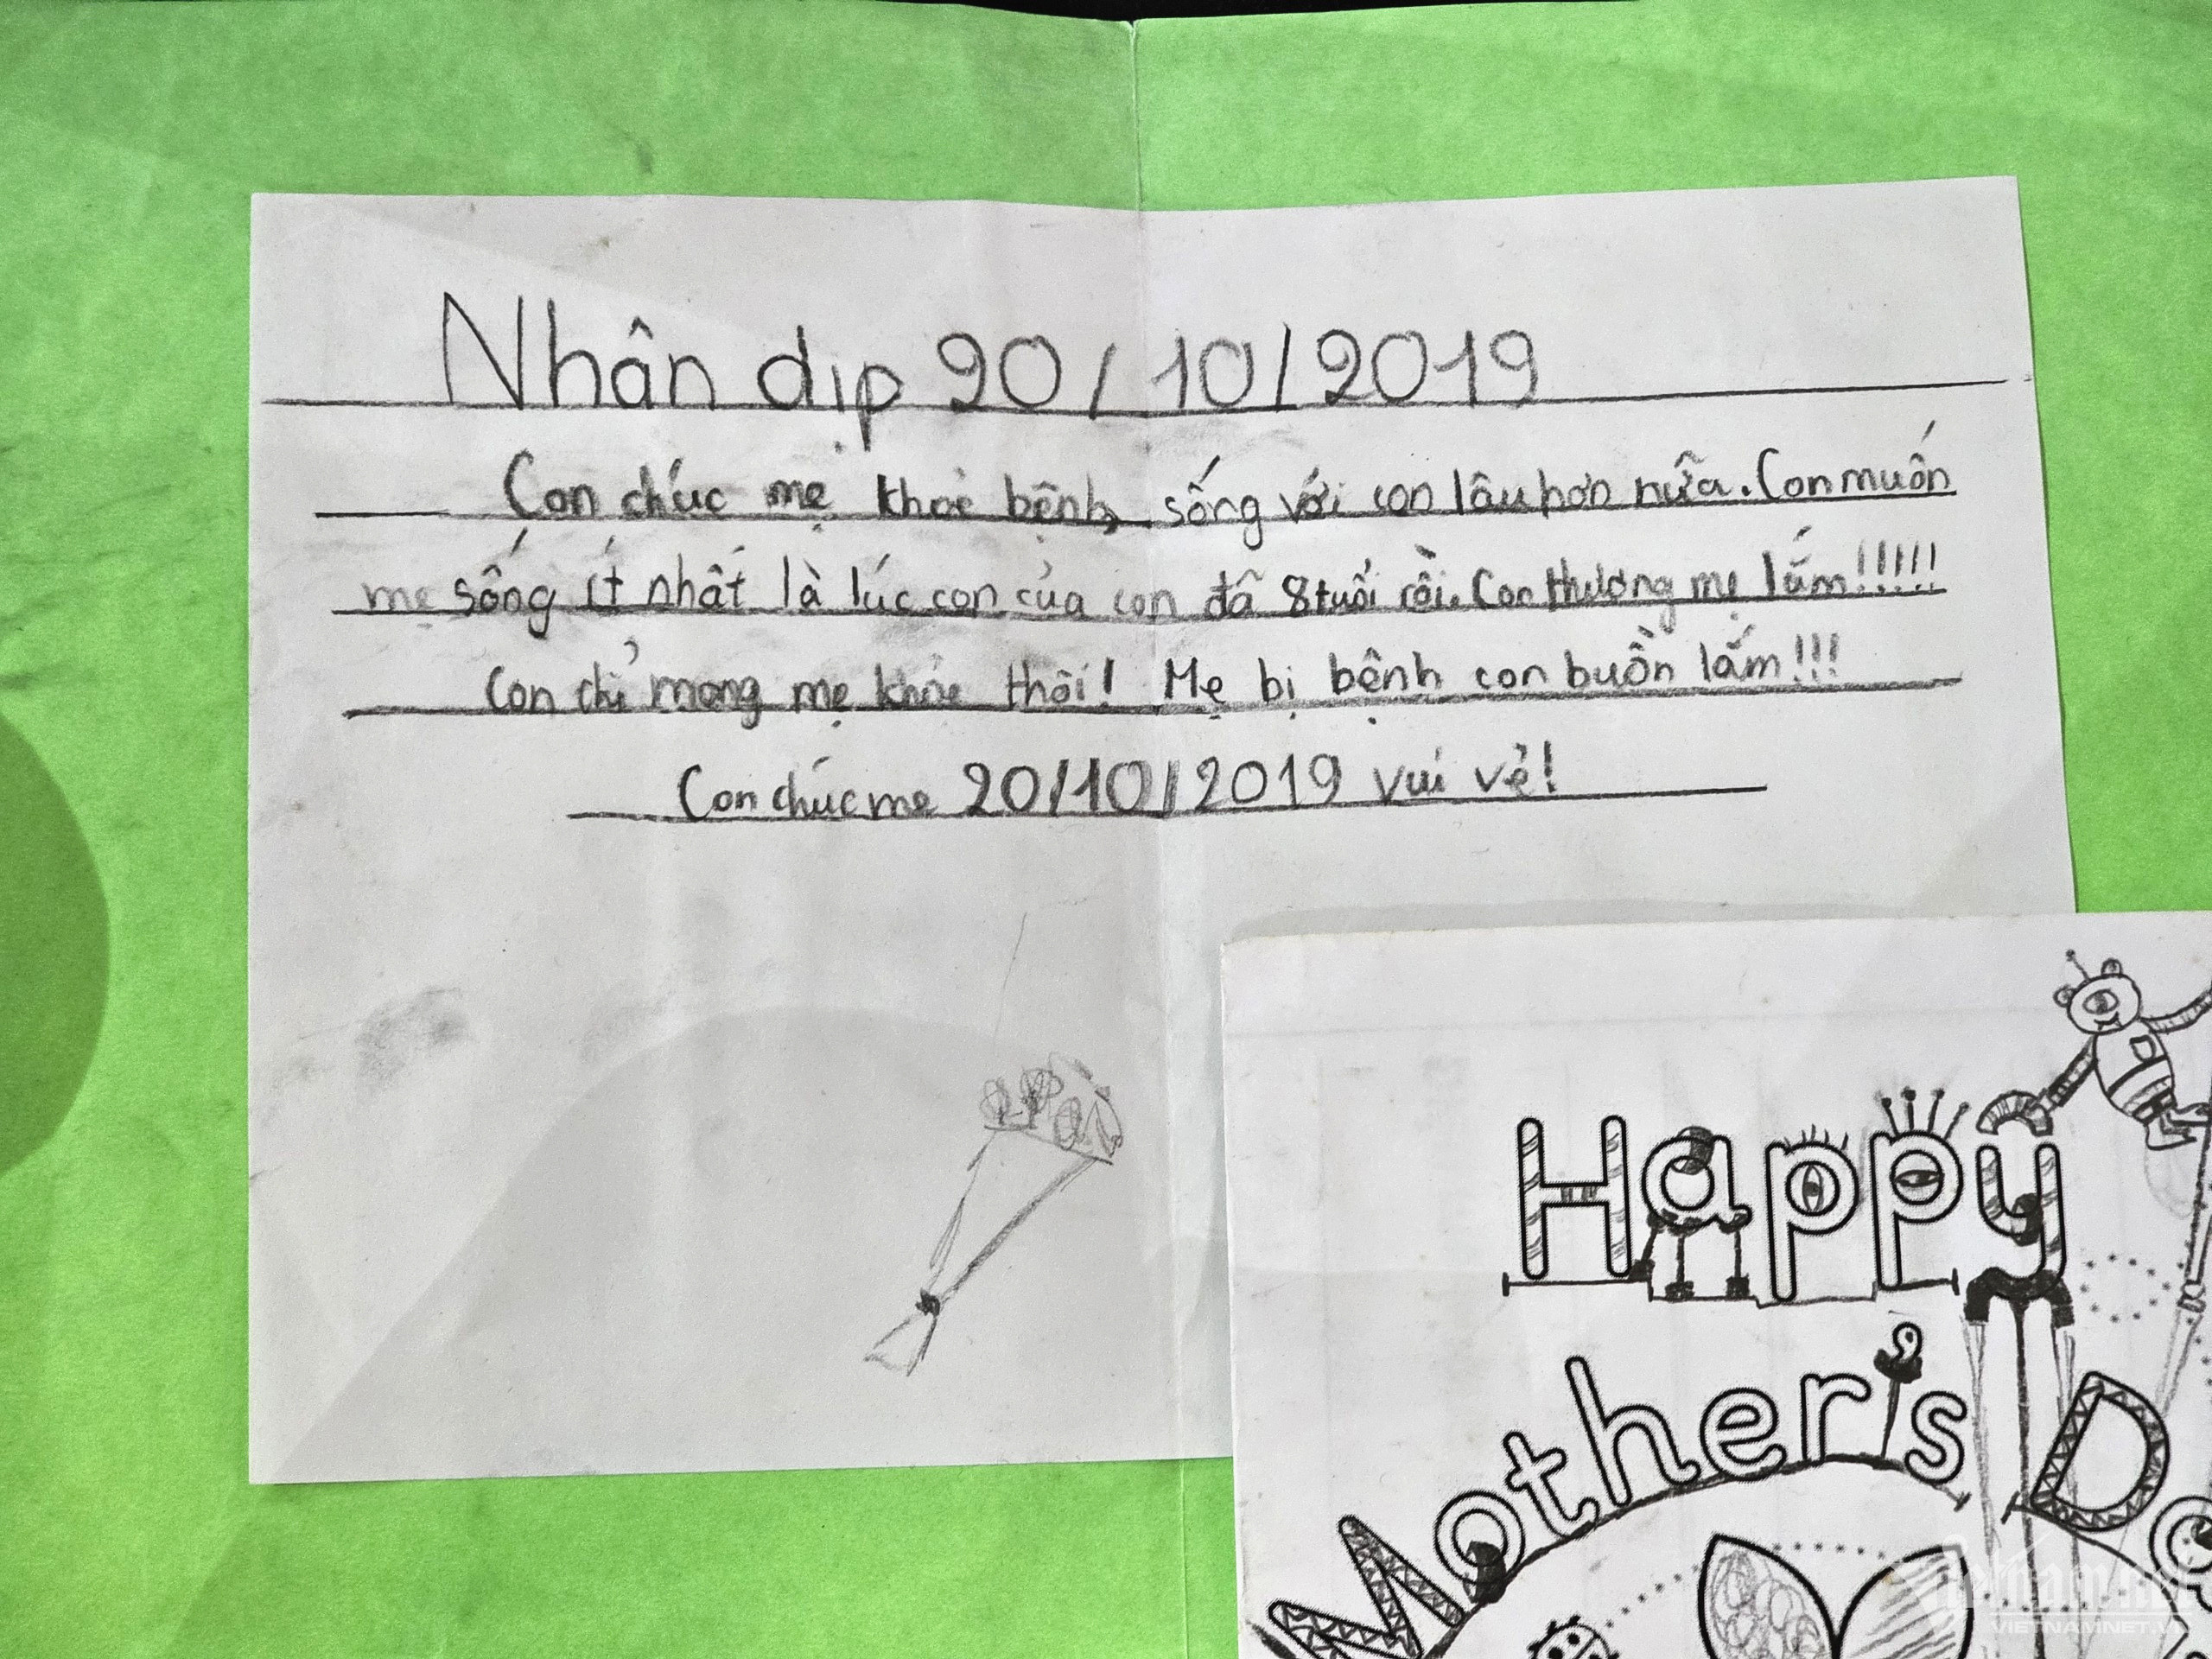 Nhân dịp 20/10/2019
Con chúc mẹ khoẻ bệnh, sống với con lâu hơn nữa. Con muốn
mẹ sống ít nhất là lúc con của con đã 8 tuổi rồi. Con thương mẹ lắm!!!!!
Con chỉ mong mẹ khỏe thôi! Mẹ bị bệnh con buồn lắm!!!
Con chúc mẹ 20/10/2019 vui vẻ!
Happy
Mother's Da
VIETNAMNET.V